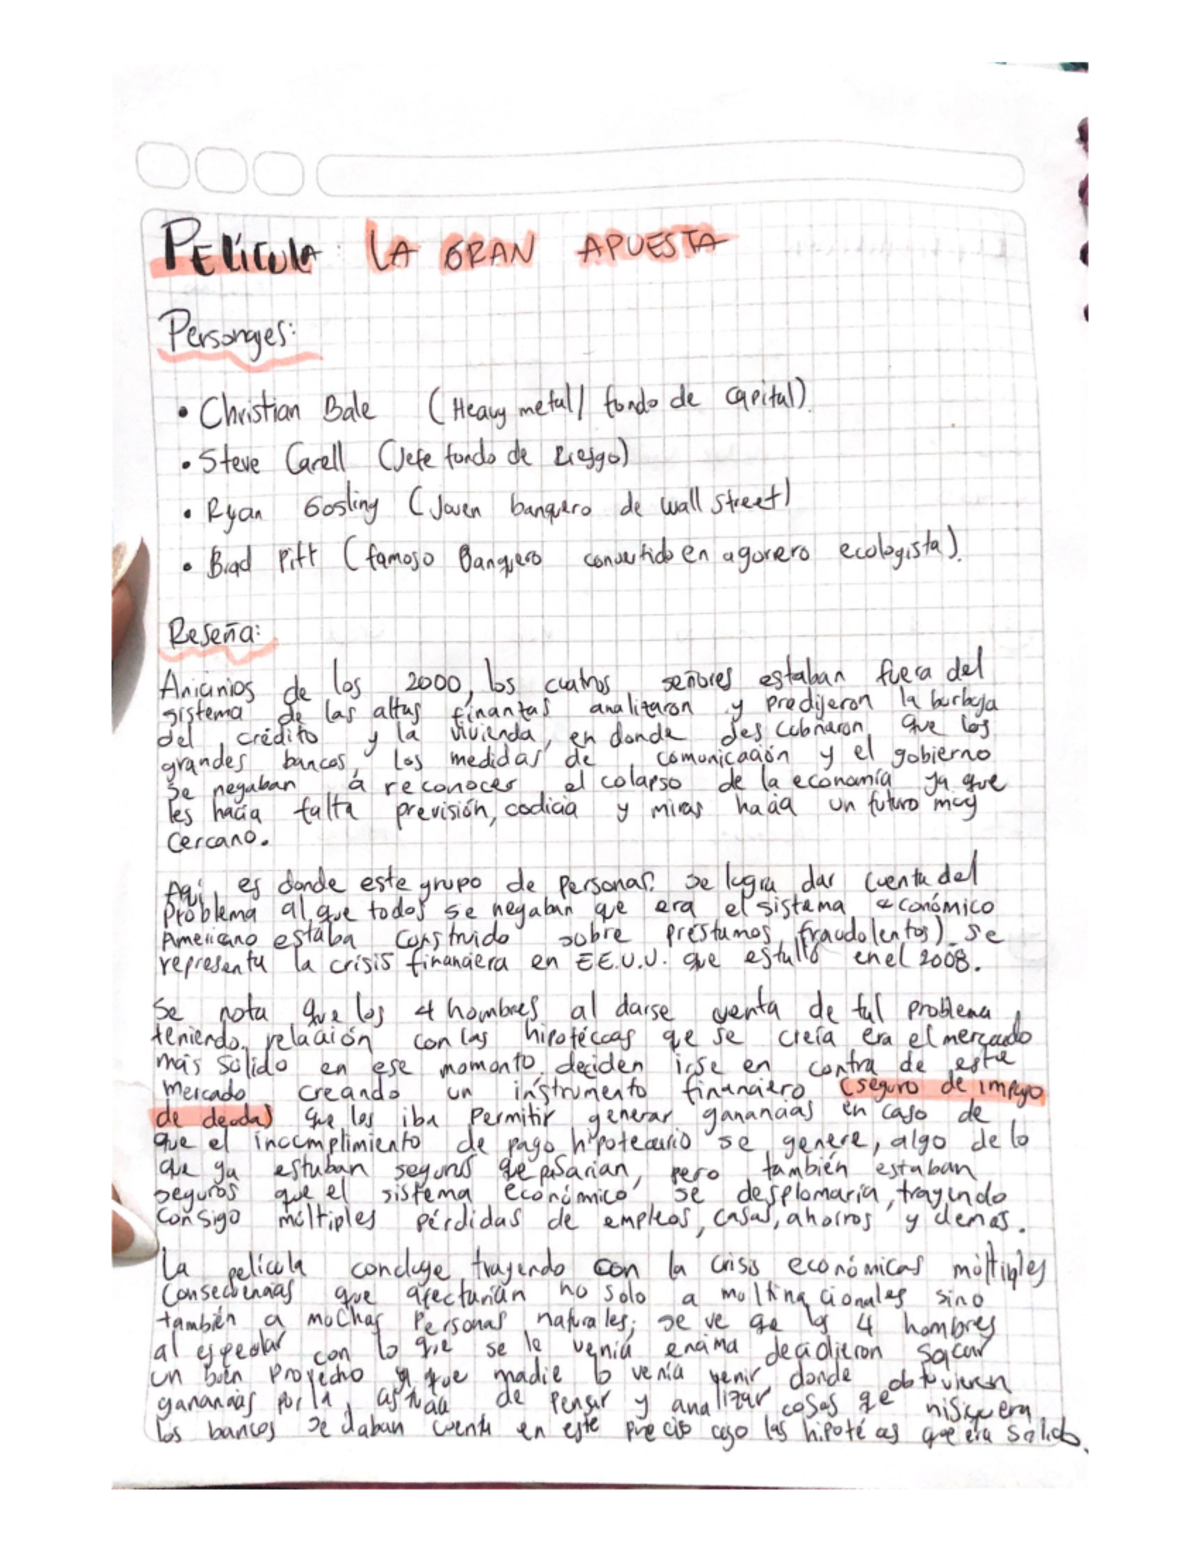 PELÍCULA: LA GRAN APUESTA
Personajes:
• Christian Bale (Heavy metal/ fondo de capital).
• Steve Carell (Jefe fondo de Riesgo)
• Ryan Gosling (Joven banquero de wall street)
• Brad Pitt (famoso Banquero convertido en agorero ecologista).
Reseña:
Anicinios de los 2000, los cuatros señores estaban fuera del
sistema de las altas finanzas analizaron y predijeron la burbuja
del crédito y la vivienda, en donde descubrieron que los
grandes bancos, los medidas de comunicación y el gobierno
se negaban a reconocer el colapso de la economía ya que
les hacia falta previsión, codicia y miras hacia un futuro muy
cercano.
Aqui, es donde este grupo de personas se logra dar cuenta del
problema al que todos se negaban que era el sistema económico
Americano estaba construido sobre prestamos fraudolentos) se
representa la crisis financiera en EE.U.U. que estulló en el 2008.
Se nota que los 4 hombres al darse venta de tal problema,
teniendo relación con las hipotéccas que se creía era el mercado
más sólido en ese momento, deciden irse en contra de este
mercado creando un instrumento financiero (seguro de impago
de deudas) que les iba permitir generar ganancias en caso de
que el incumplimiento de pago hipotecario se genere, algo de lo
que ya estaban seguros que pasarian, pero también estaban
seguros que el sistema económico se desplomaría, trayendo
consigo múltiples pérdidas de empleos, casas, ahorros y demas.
La película concluye trayendo con la crisis económicas múltiples
consecuencias que afectarían no solo a multinacionales sino
también a muchas personas naturales; se ve que los 4 hombres
al especular con lo que se le venía encima decidieron sacar
un buen provecho ya que nadie lo venía venir donde obtuvieron
ganancias por la astucia de pensar y analizar cosas que nisiquera
los bancos se daban cuenta en este preciso caso las hipotécas que era solido.